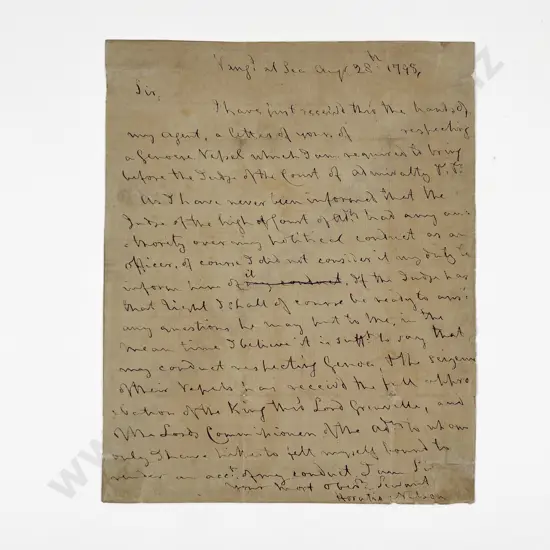 Vangd at Sea Augt 28th 1798
Sir,
I have just received thro the hands of
my agent, a letter of yours of respecting
a Genoese Vessel which I am required to bring
before the Judge of the Court of Admiralty
As I have never been informed that the
Judge of the high Court of Adty had any au
-thority over my political conduct as an
officer, of course I did not consider it my duty to
inform him of it my conduct, If the Judge has
that right I shall of course be ready to
any questions he may put to me, in the
mean time I believe it is sufft to say that
my conduct respecting Genoa & the
of their Vessels has received the full appro
-bation of the King thro Lord Grenville, and
of the Lords Commissioners of the Adty to whom
only I have hitherto felt myself bound to
render an acct of my conduct I am Sir
your most Obedt Servant
Horatio Nelson